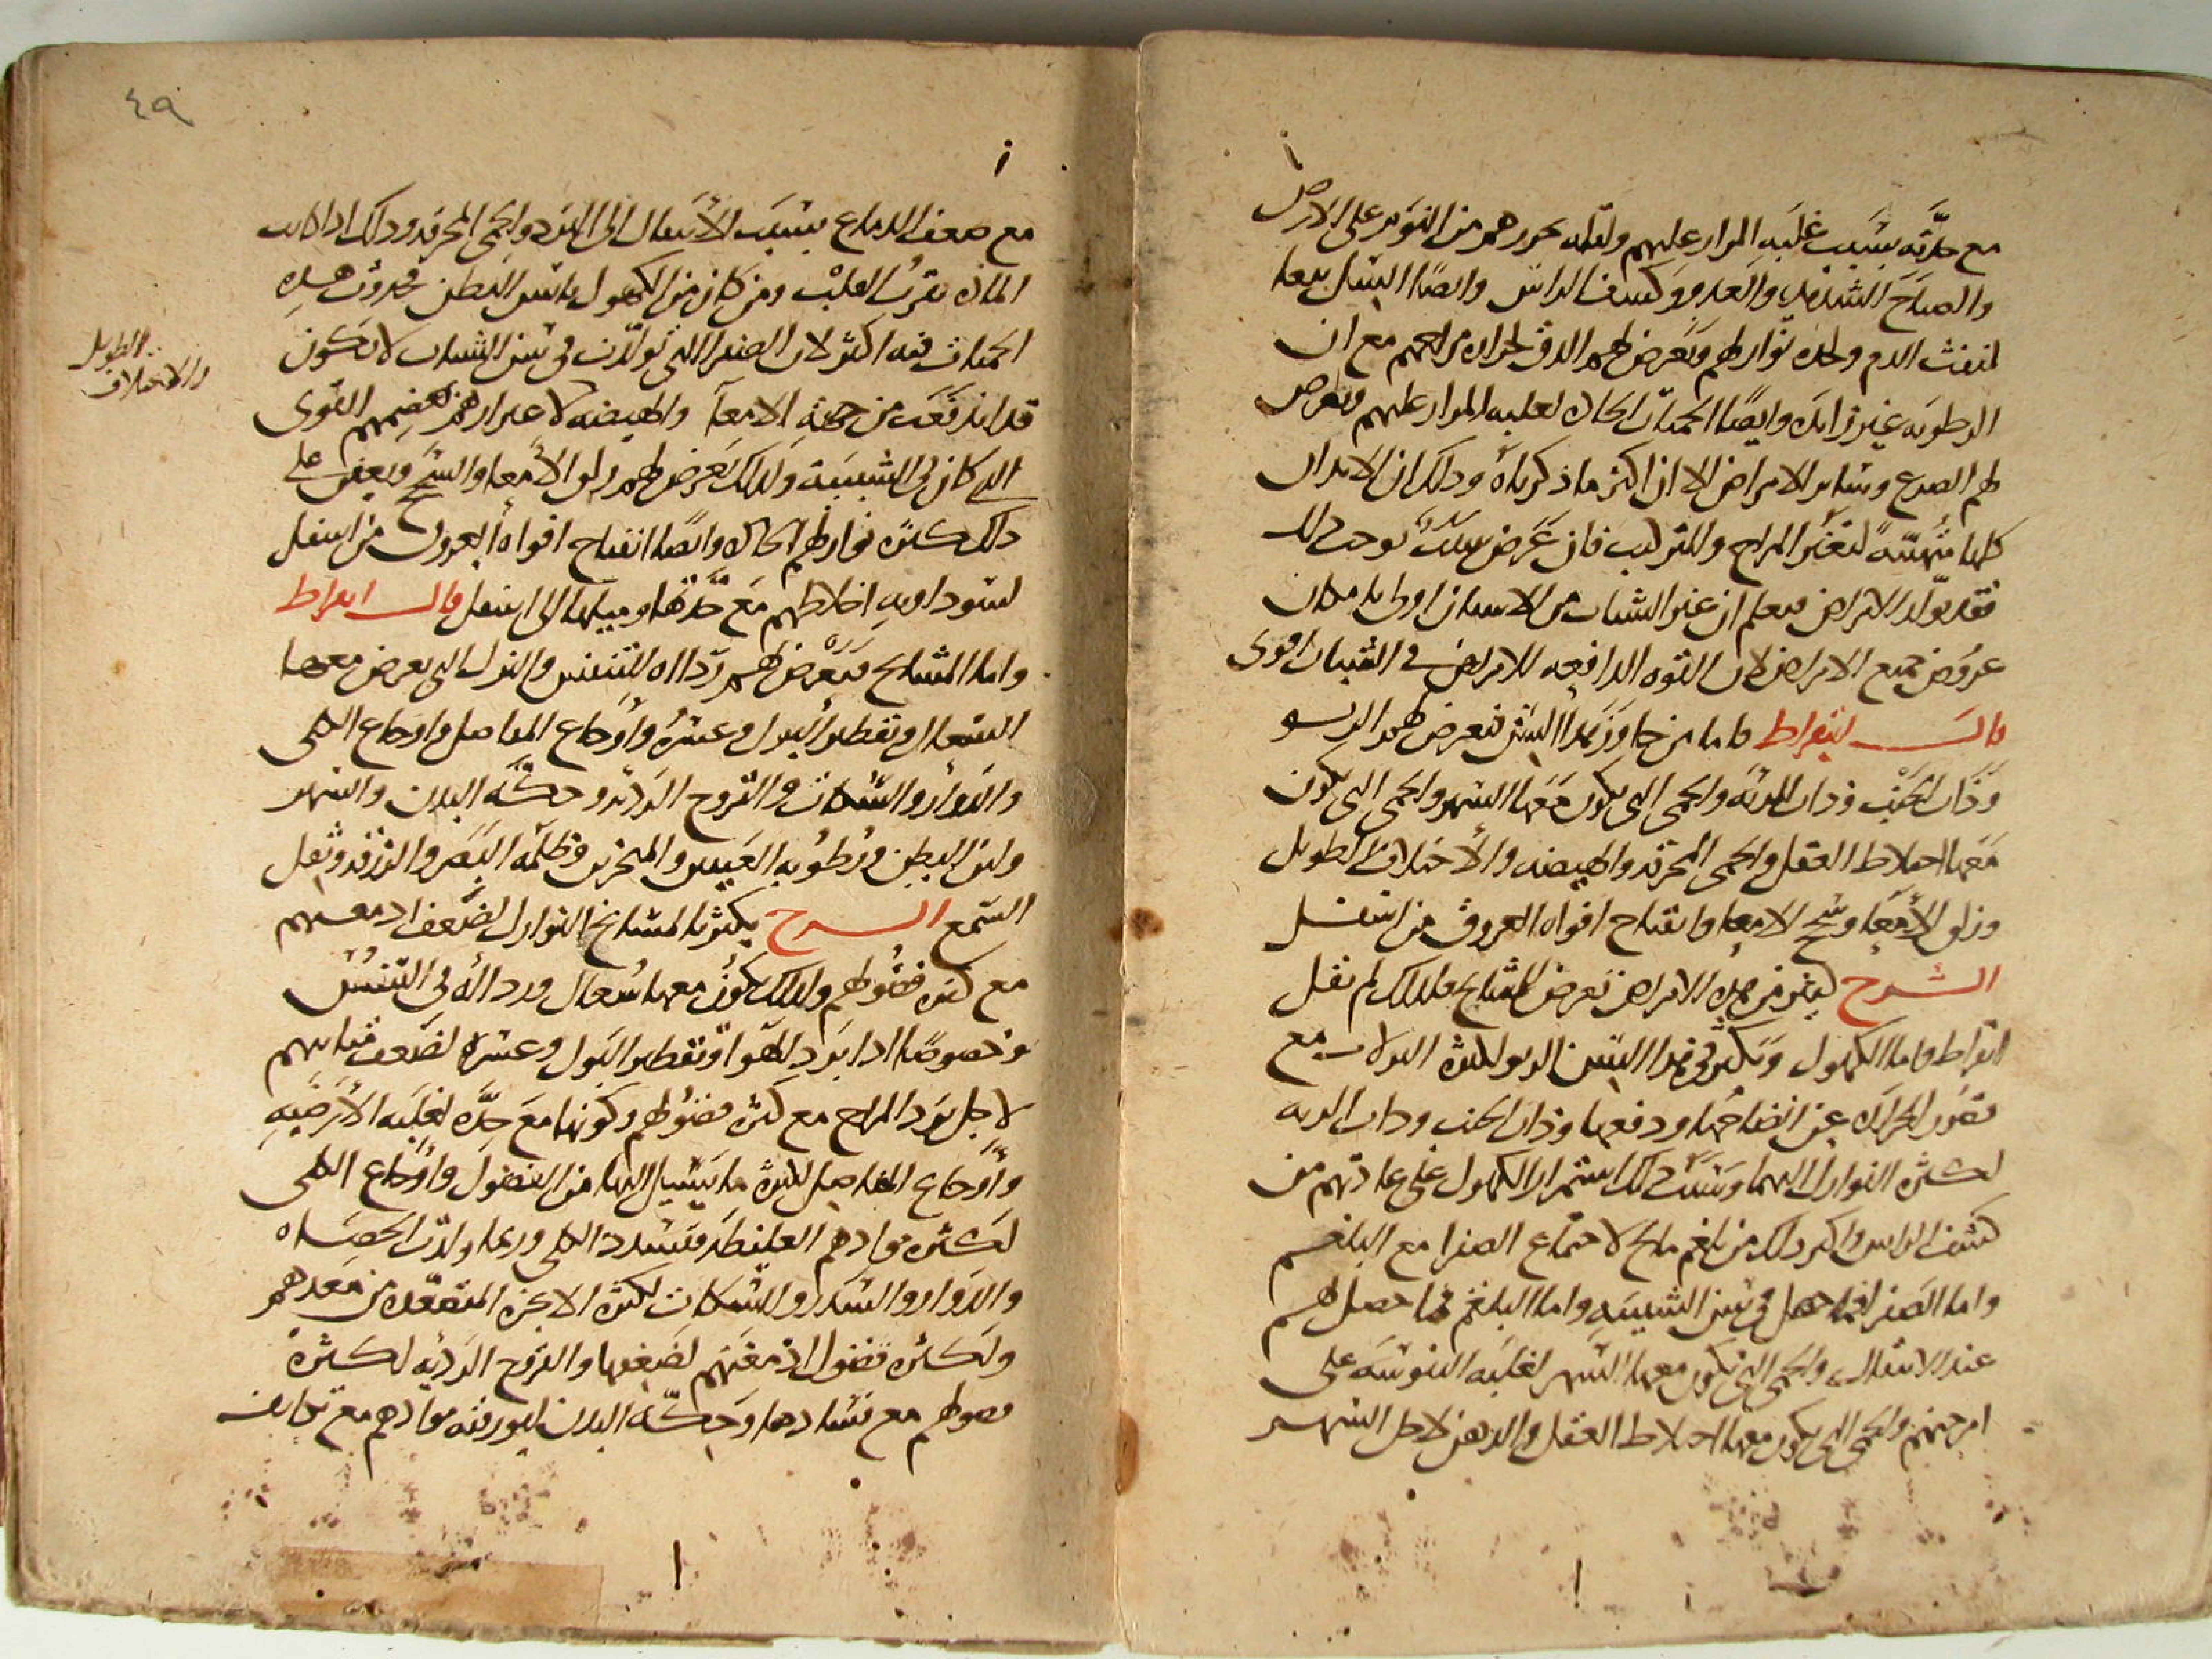 مع حدته بسبب غلبه المرار عليهم ولقله تحررهم من النوم على الارض
والصياح الشديد والعدو وكشف الراس وايضا السل تبعا
لنفث الدم وحده نوازلهم وتعرض لهم الدق لحراره مزاجهم مع ان
الرطوبه غير زايده وايضا الحميات الحاده لغلبه المرار عليهم ويعرض
لهم الصرع وساير الامراض الا ان اكثر ما ذكرناه وذلك ان الابدان
كلها متهيئة لتغير المزاج والتركيب فان عرض سبب يوجب ذلك
فقد تولد الامراض فيعلم ان غير الشباب من الاسنان اولى بامكان
عروض جميع الامراض لان القوه الدافعه للامراض في الشباب اقوى
قال ابقراط فاما من جاوز هذا السن فيعرض لهم الربو
وذات الجنب وذات الريه والحمى التي يكون معها السهر والحمى التي يكون
معها اختلاط العقل والحمى المحرقه والهيضه والاختلاف الطويل
وزلق الامعا وسحج الامعا وانفتاح افواه العروق من اسفل
الشرح كثير من هذه الامراض تعرض للمشايخ فلذلك لم نقل
ابقراط واما الكهول ويكثر في هذا السن الربو لكثرة النزلات مع
قصور الحراره عن انضاجها ودفعها وذات الجنب وذات الريه
لكثرة النوازل اليهما وسبب ذلك استمرار الكهول على عادتهم من
كشف الراس واكثر ذلك من بلغم مالح لاجتماع الصفرا مع البلغم
واما الصفرا فما حصل في سن الشبيبه واما البلغم فما حصل لهم
عند الانتقال والحمى التي يكون معها السهر لغلبه اليبوسه على
امزجتهم والحمى التي يكون معها اختلاط العقل والذهن لاجل السهر
٤٩
مع ضعف الدماغ بسبب الانتقال الى البرد والحمى المحرقه وذلك اذا كانت
الماده بقرب القلب ومن كان من الكهول يابس البطن فحدوث هذه
الحميات فيه اكثر لان الصفرا التي تولدت في سن الشباب لا تكون
قد اندفعت من جهة الامعا والهيضه لاغترارهم بهضمهم القوي
الذي كان في الشبيبة ولذلك يعرض لهم زلق الامعا والسحج ويعين على
ذلك كثرة نوازلهم الحاده وايضا انفتاح افواه العروق من اسفل
لسوداوية اخلاطهم مع حدتها وميلها الى اسفل قال ابقراط
واما المشايخ فيعرض لهم رداءه التنفس والنزل التي يعرض معها
السعال وتقطير البول وعسره واوجاع المفاصل واوجاع الكلى
والدوار والسكات والقروح الرديه وحكة البدن والسهر
ولين البطن ورطوبه العينين والمنخرين وظلمه البصر والزرقه وثقل
السمع الشرح يكثر بالمشايخ النوازل لضعف ادمغتهم
مع كثره فضولهم ولذلك يكون معها سعال ورداءه في التنفس
وخصوصا اذا برد الهوا وتقطير البول وعسره لضعف مثانتهم
لاجل برد المزاج مع كثره فضولهم وكونها مع حدة لغلبه الارضيه
واوجاع المفاصل لكثرة ما يسيل اليها من الفضول واوجاع الكلى
لكثره موادهم الغليظه فتسدد الكلى وربما ولدت الحصاه
والدوار والسدر والسكات لكثرة الابخره المتصعده من معدهم
ولكثره فضول ادمغتهم لضعفها والقروح الرديه لكثرة
فضولهم مع فسادها وحكة البدن لبورقيه موادهم مع تكاثف
الطويل
والاختلاف